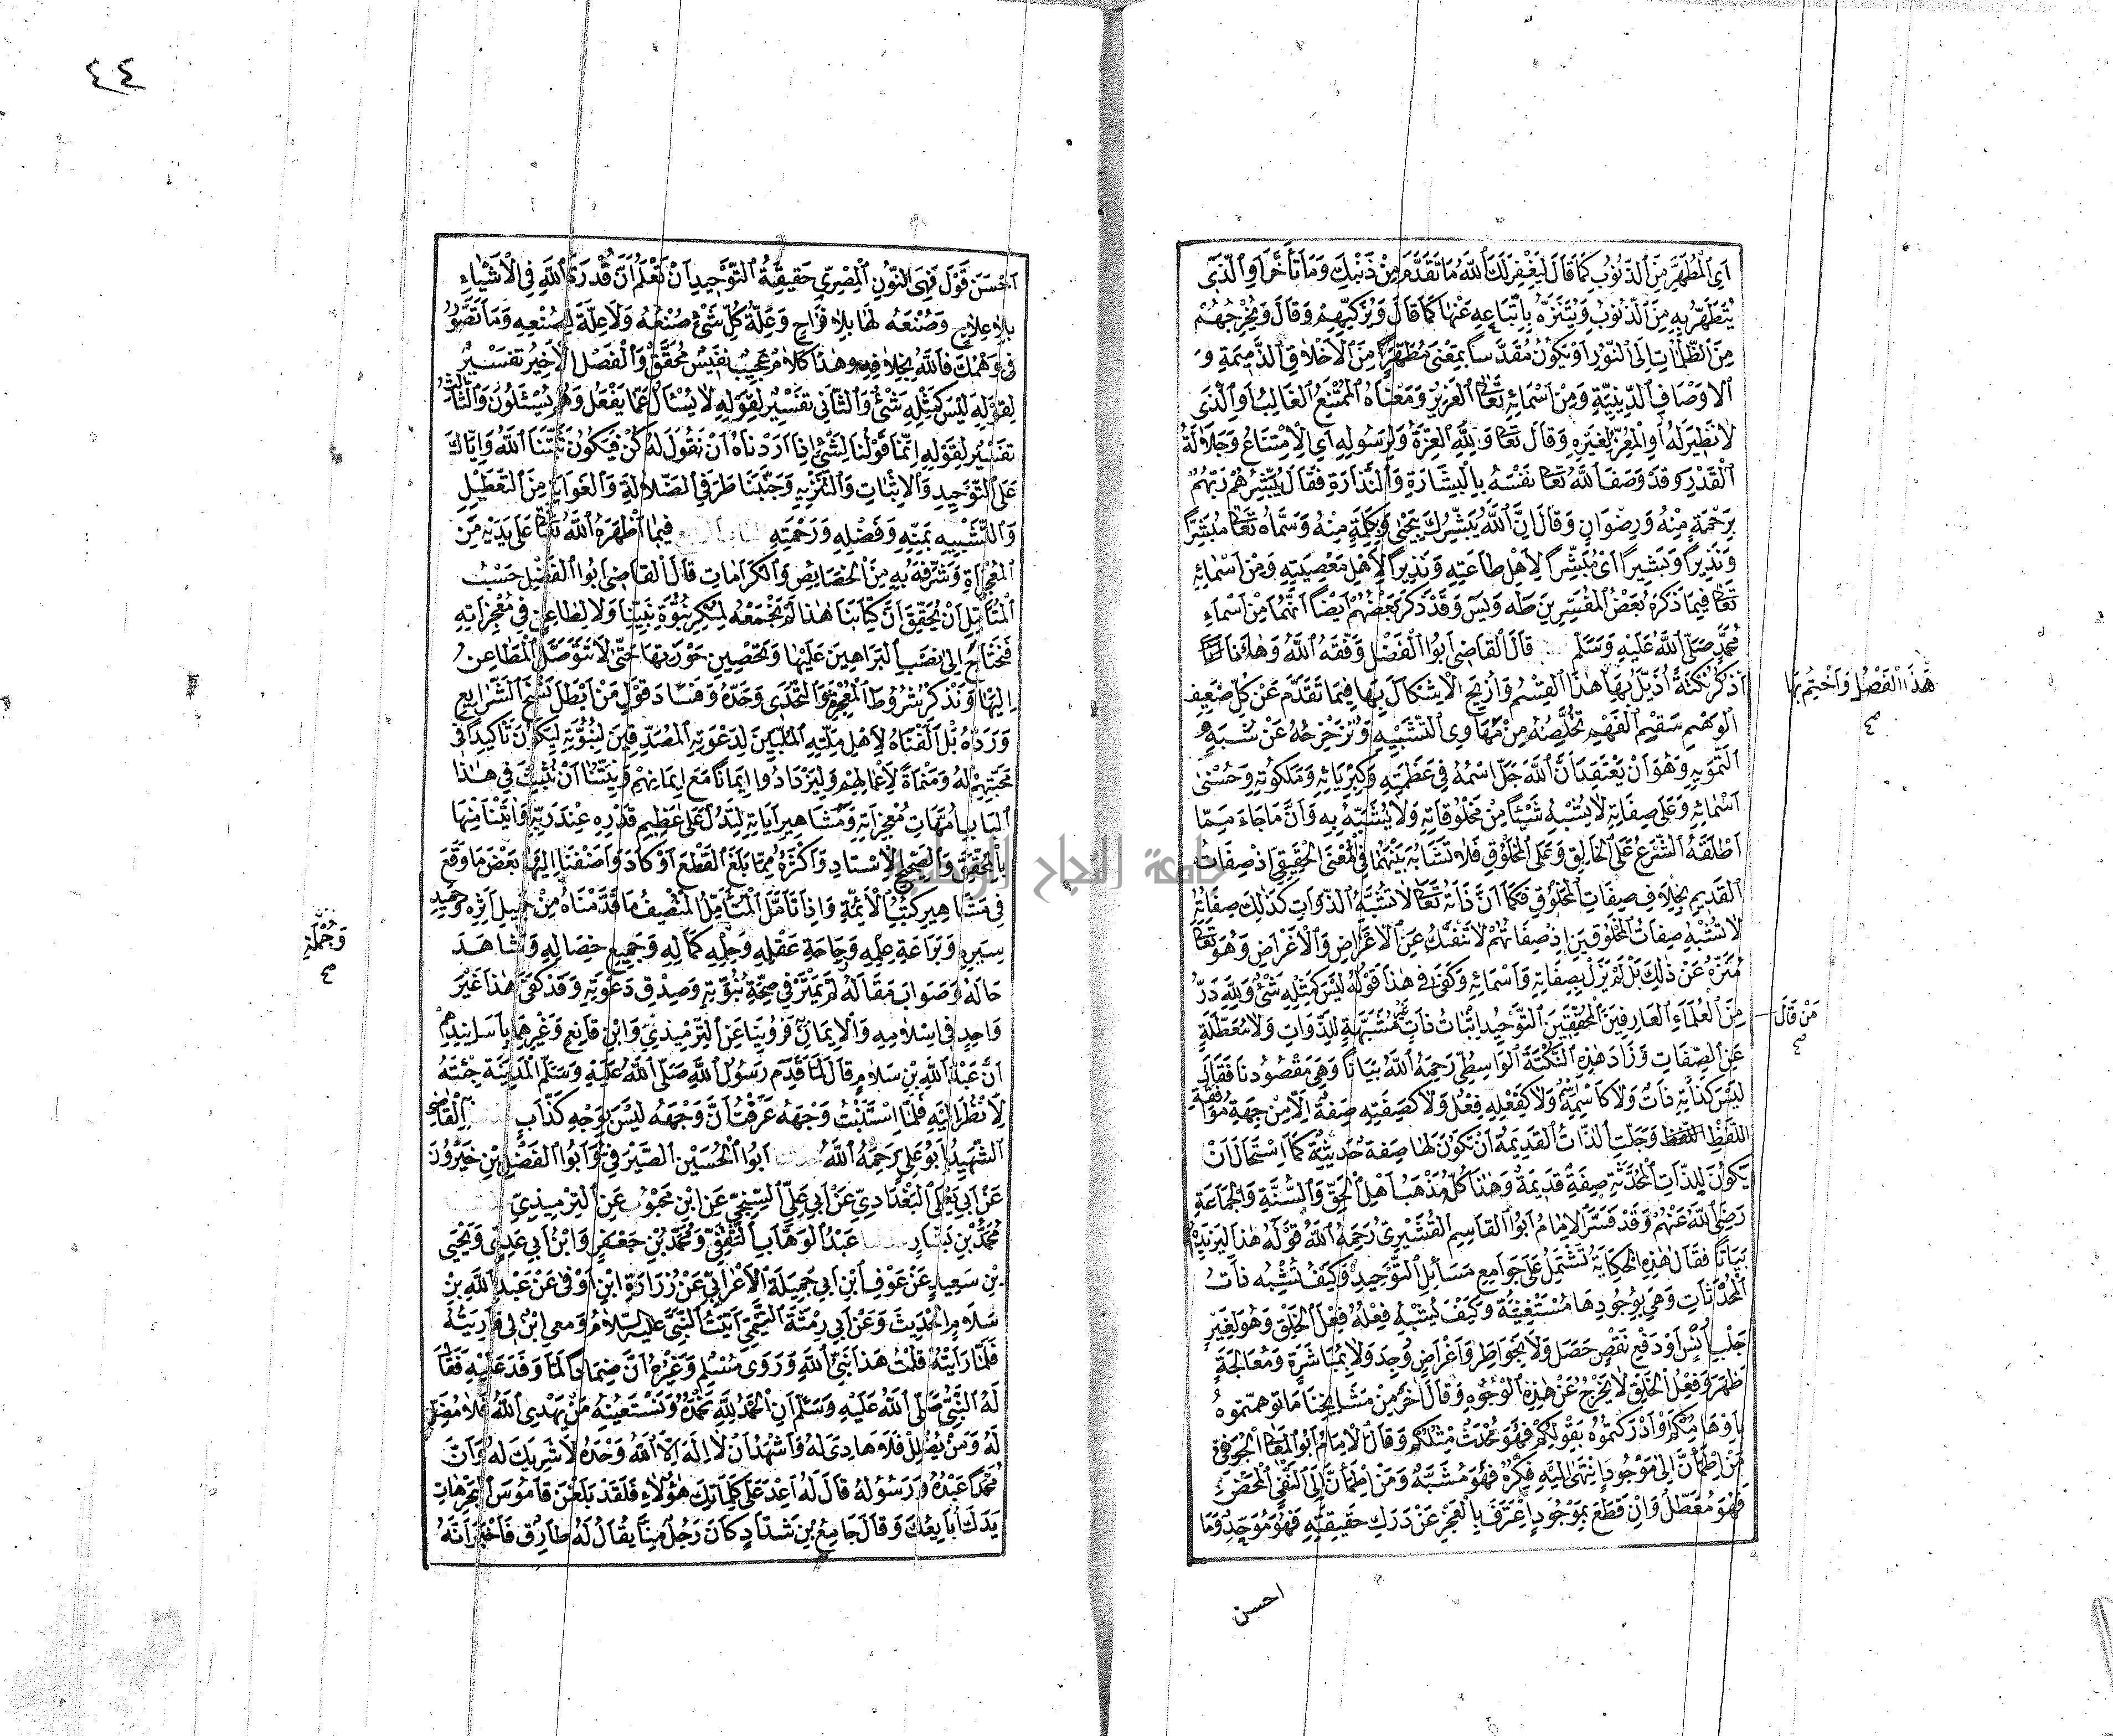 اَيِ الْمُطَهَّرِ مِنَ الذُّنُوبِ كَمَا قَالَ لِيَغْفِرَ لَكَ اللّٰهُ مَا تَقَدَّمَ مِنْ ذَنْبِكَ وَمَا تَأَخَّرَ اَوِ الَّذِي
يُتَطَهَّرُ بِهِ مِنَ الذُّنُوبِ وَيُتَنَزَّهُ بِاِتِّبَاعِهِ عَنْهَا كَمَا قَالَ وَيُزَكِّيهِمْ وَقَالَ وَيُخْرِجُهُمْ
مِنَ الظُّلُمَاتِ اِلَى النُّورِ اَوْ يَكُونُ مُقَدَّساً بِمَعْنَى مُطَهَّراً مِنَ الْاَخْلَاقِ الذَّمِيمَةِ وَ
الْاَوْصَافِ الدَّنِيَّةِ وَمِنْ اَسْمَائِهِ تَعَالٰى الْعَزِيزُ وَمَعْنَاهُ الْمُمْتَنِعُ الْغَالِبُ اَوِ الَّذِي
لَا نَظِيرَ لَهُ اَوِ الْمُعِزُّ لِغَيْرِهِ وَقَالَ تَعَالٰى وَلِلّٰهِ الْعِزَّةُ وَلِرَسُولِهِ اَيِ الْاِمْتِنَاعُ وَجَلَالَةُ
الْقَدْرِ وَقَدْ وَصَفَ اللّٰهُ تَعَالٰى نَفْسَهُ بِالْبِشَارَةِ وَالنِّذَارَةِ فَقَالَ يُبَشِّرُهُمْ رَبُّهُمْ
بِرَحْمَةٍ مِنْهُ وَرِضْوَانٍ وَقَالَ اِنَّ اللّٰهَ يُبَشِّرُكَ بِيَحْيٰى وَبِكَلِمَةٍ مِنْهُ وَسَمَّاهُ تَعَالٰى مُبَشِّراً
وَنَذِيراً وَبَشِيراً اَيْ مُبَشِّراً لِاَهْلِ طَاعَتِهِ وَنَذِيراً لِاَهْلِ مَعْصِيَتِهِ وَمِنْ اَسْمَائِهِ
تَعَالٰى فِيمَا ذَكَرَهُ بَعْضُ الْمُفَسِّرِينَ طٰه وَيٰس وَقَدْ ذَكَرَ بَعْضُهُمْ اَيْضاً اَنَّهُمَا مِنْ اَسْمَاءِ
مُحَمَّدٍ صَلَّى اللّٰهُ عَلَيْهِ وَسَلَّمَ قَالَ الْقَاضِي اَبُوا الْفَضْلِ وَفَّقَهُ اللّٰهُ وَهَا اَنَا
اَذْكُرُ نُكْتَةً اُذَيِّلُ بِهَا هٰذَا الْقِسْمَ وَاُزِيحُ الْاِشْكَالَ بِهَا فِيمَا تَقَدَّمَ عَنْ كُلِّ ضَعِيفِ
هٰذَا الْفَصْلَ وَاَخْتِمُ بِهَا
صح
الْوَهْمِ سَقِيمِ الْفَهْمِ تُخَلِّصُهُ مِنْ مَهَاوِي التَّشْبِيهِ وَتُزَحْزِحُهُ عَنْ شُبَهِ
التَّمْوِيهِ وَهُوَ اَنْ يَعْتَقِدَ اَنَّ اللّٰهَ جَلَّ اِسْمُهُ فِي عَظَمَتِهِ وَكِبْرِيَائِهِ وَمَلَكُوتِهِ وَحُسْنٰى
اَسْمَائِهِ وَعُلٰى صِفَاتِهِ لَا يُشْبِهُ شَيْئاً مِنْ مَخْلُوقَاتِهِ وَلَا يُشَبَّهُ بِهِ وَاَنَّ مَا جَاءَ مِمَّا
اَطْلَقَهُ الشَّرْعُ عَلَى الْخَالِقِ وَعَلَى الْمَخْلُوقِ فَلَا تَشَابُهَ بَيْنَهُمَا فِي الْمَعْنَى الْحَقِيقِي اِذْ صِفَاتُ
الْقَدِيمِ بِخِلَافِ صِفَاتِ الْمَخْلُوقِ فَكَمَا اَنَّ ذَاتَهُ تَعَالٰى لَا تُشْبِهُ الذَّوَاتِ كَذٰلِكَ صِفَاتُهُ
لَا تُشْبِهُ صِفَاتِ الْمَخْلُوقِينَ اِذْ صِفَاتُهُمْ لَا تَنْفَكُّ عَنِ الْاَعْرَاضِ وَالْاَغْرَاضِ وَهُوَ تَعَالٰى
مُنَزَّهٌ عَنْ ذٰلِكَ بَلْ لَمْ يَزَلْ بِصِفَاتِهِ وَاَسْمَائِهِ وَكَفٰى فِي هٰذَا قَوْلُهُ لَيْسَ كَمِثْلِهِ شَيْءٌ وَلِلّٰهِ دَرُّ
مَنْ قَالَ
صح
مِنَ الْعُلَمَاءِ الْعَارِفِينَ الْمُحَقِّقِينَ التَّوْحِيدُ اِثْبَاتُ ذَاتٍ غَيْرِ مُشَبَّهَةٍ لِلذَّوَاتِ وَلَا مُعَطَّلَةٍ
عَنِ الصِّفَاتِ وَزَادَ هٰذِهِ النُّكْتَةَ الْوَاسِطِيُّ رَحِمَهُ اللّٰهُ بَيَاناً وَهِيَ مَقْصُودُنَا فَقَالَ
لَيْسَ كَذَاتِهِ ذَاتٌ وَلَا كَاسْمِهِ اسْمٌ وَلَا كَفِعْلِهِ فِعْلٌ وَلَا كَصِفَتِهِ صِفَةٌ اِلَّا مِنْ جِهَةِ مُوَافَقَةِ
اللَّفْظِ اللَّفْظَ وَجَلَّتِ الذَّاتُ الْقَدِيمَةُ اَنْ تَكُونَ لَهَا صِفَةٌ حَدِيثَةٌ كَمَا اِسْتَحَالَ اَنْ
يَكُونَ لِلذَّاتِ الْمُحْدَثَةِ صِفَةٌ قَدِيمَةٌ وَهٰذَا كُلُّهُ مَذْهَبُ اَهْلِ الْحَقِّ وَالسُّنَّةِ وَالْجَمَاعَةِ
رَضِيَ اللّٰهُ عَنْهُمْ وَقَدْ فَسَّرَ الْاِمَامُ اَبُوا الْقَاسِمِ الْقُشَيْرِيُّ رَحِمَهُ اللّٰهُ قَوْلَهُ هٰذَا لِيَزِيدَهُ
بَيَاناً فَقَالَ هٰذِهِ الْحِكَايَةُ تَشْتَمِلُ عَلٰى جَوَامِعِ مَسَائِلِ التَّوْحِيدِ وَكَيْفَ تُشْبِهُ ذَاتُهُ ذَاتَ
الْمُحْدَثَاتِ وَهِيَ بِوُجُودِهَا مُسْتَغْنِيَةٌ وَكَيْفَ يُشْبِهُ فِعْلُهُ فِعْلَ الْخَلْقِ وَهُوَ لِغَيْرِ
جَلْبِ اُنْسٍ اَوْ دَفْعِ نَقْصٍ حَصَلَ وَلَا بِخَوَاطِرَ وَاَغْرَاضٍ وُجِدَ وَلَا بِمُبَاشَرَةٍ وَمُعَالَجَةٍ
ظَهَرَ وَفِعْلُ الْخَلْقِ لَا يَخْرُجُ عَنْ هٰذِهِ الْوُجُوهِ وَقَالَ اٰخَرُ مِنْ مَشَايِخِنَا مَا تَوَهَّمْتُمُوهُ
بِاَوْهَامِكُمْ اَوْ اَدْرَكْتُمُوهُ بِعُقُولِكُمْ فَهُوَ مُحْدَثٌ مِثْلُكُمْ وَقَالَ الْاِمَامُ اَبُو الْمَعَالِي الْجُوَيْنِيُّ
مَنِ اطْمَأَنَّ اِلٰى مَوْجُودٍ اِنْتَهٰى اِلَيْهِ فِكْرُهُ فَهُوَ مُشَبِّهٌ وَمَنِ اطْمَأَنَّ اِلَى النَّفْيِ الْمَحْضِ
فَهُوَ مُعَطِّلٌ وَاِنْ قَطَعَ بِمَوْجُودٍ اِعْتَرَفَ بِالْعَجْزِ عَنْ دَرَكِ حَقِيقَتِهِ فَهُوَ مُوَحِّدٌ وَمَا
احسن
٤٤
اَحْسَنَ قَوْلَ ذِي النُّونِ الْمِصْرِيِّ حَقِيقَةُ التَّوْحِيدِ اَنْ تَعْلَمَ اَنَّ قُدْرَةَ اللّٰهِ فِي الْاَشْيَاءِ
بِلَا عِلَاجٍ وَصُنْعَهُ لَهَا بِلَا مِزَاجٍ وَعِلَّةُ كُلِّ شَيْءٍ صُنْعُهُ وَلَا عِلَّةَ لِصُنْعِهِ وَمَا تُصُوِّرَ
فِي وَهْمِكَ فَاللّٰهُ بِخِلَافِهِ وَهٰذَا كَلَامٌ عَجِيبٌ نَفِيسٌ مُحَقَّقٌ وَالْفَصْلُ الْاَخِيرُ تَفْسِيرٌ
لِقَوْلِهِ لَيْسَ كَمِثْلِهِ شَيْءٌ وَالثَّانِي تَفْسِيرٌ لِقَوْلِهِ لَا يُسْئَلُ عَمَّا يَفْعَلُ وَهُمْ يُسْئَلُونَ وَالثَّالِثُ
تَفْسِيرٌ لِقَوْلِهِ اِنَّمَا قَوْلُنَا لِشَيْءٍ اِذَا اَرَدْنَاهُ اَنْ نَقُولَ لَهُ كُنْ فَيَكُونُ ثَبَّتَنَا اللّٰهُ وَاِيَّاكَ
عَلَى التَّوْحِيدِ وَالْاِثْبَاتِ وَالتَّنْزِيهِ وَجَنَّبَنَا طَرَفَيِ الضَّلَالَةِ وَالْغَوَايَةِ مِنَ التَّعْطِيلِ
وَالتَّشْبِيهِ بِمَنِّهِ وَفَضْلِهِ وَرَحْمَتِهِ فِيمَا اَظْهَرَهُ اللّٰهُ تَعَالٰى عَلٰى يَدَيْهِ مِنَ
الْمُعْجِزَاتِ وَشَرَّفَهُ بِهِ مِنَ الْخَصَائِصِ وَالْكَرَامَاتِ قَالَ الْقَاضِي اَبُوا الْفَضْلِ حَسْبُ
الْمُتَأَمِّلِ اَنْ يُحَقِّقَ اَنَّ كِتَابَنَا هٰذَا لَمْ نَجْمَعْهُ لِمُنْكِرِ نُبُوَّةِ نَبِيِّنَا وَلَا لِطَاعِنٍ فِي مُعْجِزَاتِهِ
فَنَحْتَاجُ اِلٰى نَصْبِ الْبَرَاهِينِ عَلَيْهَا وَتَحْصِينِ حَوْزَتِهَا حَتّٰى لَا تَتَوَصَّلَ الْمَطَاعِنُ
اِلَيْهَا وَنَذْكُرُ شُرُوطَ الْمُعْجِزِ وَالتَّحَدِّي وَحَدَّهُ وَفَسَادَ قَوْلِ مَنْ اَبْطَلَ نَسْخَ الشَّرَائِعِ
وَرَدَّهُ بَلْ اَلَّفْنَاهُ لِاَهْلِ مِلَّتِهِ الْمُلَبِّينَ لِدَعْوَتِهِ الْمُصَدِّقِينَ لِنُبُوَّتِهِ لِيَكُونَ تَأْكِيداً فِي
مَحَبَّتِهِمْ لَهُ وَمَنْمَاةً لِاَعْمَالِهِمْ وَلِيَزْدَادُوا اِيمَاناً مَعَ اِيمَانِهِمْ وَنِيَّتُنَا اَنْ نُثْبِتَ فِي هٰذَا
الْبَابِ اُمَّهَاتِ مُعْجِزَاتِهِ وَمَشَاهِيرَ اٰيَاتِهِ لِتَدُلَّ عَلٰى عَظِيمِ قَدْرِهِ عِنْدَ رَبِّهِ وَاَتَيْنَا مِنْهَا
بِالْمُحَقَّقِ وَالصَّحِيحِ الْاِسْنَادِ وَاَكْثَرُهُ مِمَّا بَلَغَ الْقَطْعَ اَوْ كَادَ وَاَضَفْنَا اِلَيْهَا بَعْضَ مَا وَقَعَ
فِي مَشَاهِيرِ كُتُبِ الْاَئِمَّةِ وَاِذَا تَأَمَّلَ الْمُتَأَمِّلُ الْمُنْصِفُ مَا قَدَّمْنَاهُ مِنْ جَمِيلِ اَثَرِهِ وَحَمِيدِ
سِيَرِهِ وَبَرَاعَةِ عِلْمِهِ وَرَجَاحَةِ عَقْلِهِ وَحِلْمِهِ كَمَالِهِ وَجَمِيعِ خِصَالِهِ وَشَاهَدَ
وَجُمْلَةِ
صح
حَالَهُ وَصَوَابَ مَقَالِهِ لَمْ يَمْتَرْ فِي صِحَّةِ نُبُوَّتِهِ وَصِدْقِ دَعْوَتِهِ وَقَدْ كَفٰى هٰذَا غَيْرَ
وَاحِدٍ فِي اِسْلَامِهِ وَالْاِيمَانِ بِهِ فَرُوِّينَا عَنِ التِّرْمِذِيِّ وَابْنِ قَانِعٍ وَغَيْرِهِمَا بِاَسَانِيدِهِمْ
اَنَّ عَبْدَ اللّٰهِ بْنَ سَلَامٍ قَالَ لَمَّا قَدِمَ رَسُولُ اللّٰهِ صَلَّى اللّٰهُ عَلَيْهِ وَسَلَّمَ الْمَدِينَةَ جِئْتُهُ
لِاَنْظُرَ اِلَيْهِ فَلَمَّا اسْتَبَنْتُ وَجْهَهُ عَرَفْتُ اَنَّ وَجْهَهُ لَيْسَ بِوَجْهِ كَذَّابٍ الْقَاضِي
الشَّهِيدُ اَبُو عَلِيٍّ رَحِمَهُ اللّٰهُ اَبُوا الْحُسَيْنِ الصَّيْرَفِيُّ وَاَبُوا الْفَضْلِ بْنُ خَيْرُونَ
عَنْ اَبِي يَعْلَى الْبَغْدَادِيِّ عَنْ اَبِي عَلِيٍّ السِّنْجِيِّ عَنِ ابْنِ مَحْبُوبٍ عَنِ التِّرْمِذِيِّ
مُحَمَّدُ بْنُ بَشَّارٍ عَبْدُ الْوَهَّابِ الثَّقَفِيُّ وَمُحَمَّدُ بْنُ جَعْفَرٍ وَابْنُ اَبِي عَدِيٍّ وَيَحْيٰى
بْنُ سَعِيدٍ عَنْ عَوْفِ ابْنِ اَبِي جَمِيلَةَ الْاَعْرَابِيِّ عَنْ زُرَارَةَ ابْنِ اَوْفٰى عَنْ عَبْدِ اللّٰهِ بْنِ
سَلَامٍ الْحَدِيثَ وَعَنْ اَبِي رِمْثَةَ التَّيْمِيِّ اَتَيْتُ النَّبِيَّ عَلَيْهِ السَّلَامُ وَمَعِي ابْنٌ لِي فَاُرِيتُهُ
فَلَمَّا رَاَيْتُهُ قُلْتُ هٰذَا نَبِيُّ اللّٰهِ وَرَوٰى مُسْلِمٌ وَغَيْرُهُ اَنَّ ضِمَاداً لَمَّا وَفَدَ عَلَيْهِ فَقَالَ
لَهُ النَّبِيُّ صَلَّى اللّٰهُ عَلَيْهِ وَسَلَّمَ اَنِ الْحَمْدُ لِلّٰهِ نَحْمَدُهُ وَنَسْتَعِينُهُ مَنْ يَهْدِي اللّٰهُ فَلَا مُضِلَّ
لَهُ وَمَنْ يُضْلِلْ فَلَا هَادِيَ لَهُ وَاَشْهَدُ اَنْ لَا اِلٰهَ اِلَّا اللّٰهُ وَحْدَهُ لَا شَرِيكَ لَهُ وَاَنَّ
مُحَمَّداً عَبْدُهُ وَرَسُولُهُ قَالَ لَهُ اَعِدْ عَلَيَّ كَلِمَاتِكَ هٰؤُلَاءِ فَلَقَدْ بَلَغْنَ قَامُوسَ الْبَحْرِ هَاتِ
يَدَكَ اُبَايِعْكَ وَقَالَ جَامِعُ بْنُ شَدَّادٍ كَانَ رَجُلٌ مِنَّا يُقَالُ لَهُ طَارِقٌ فَاَخْبَرَ اَنَّهُ
جامعة النجاح الوطنية